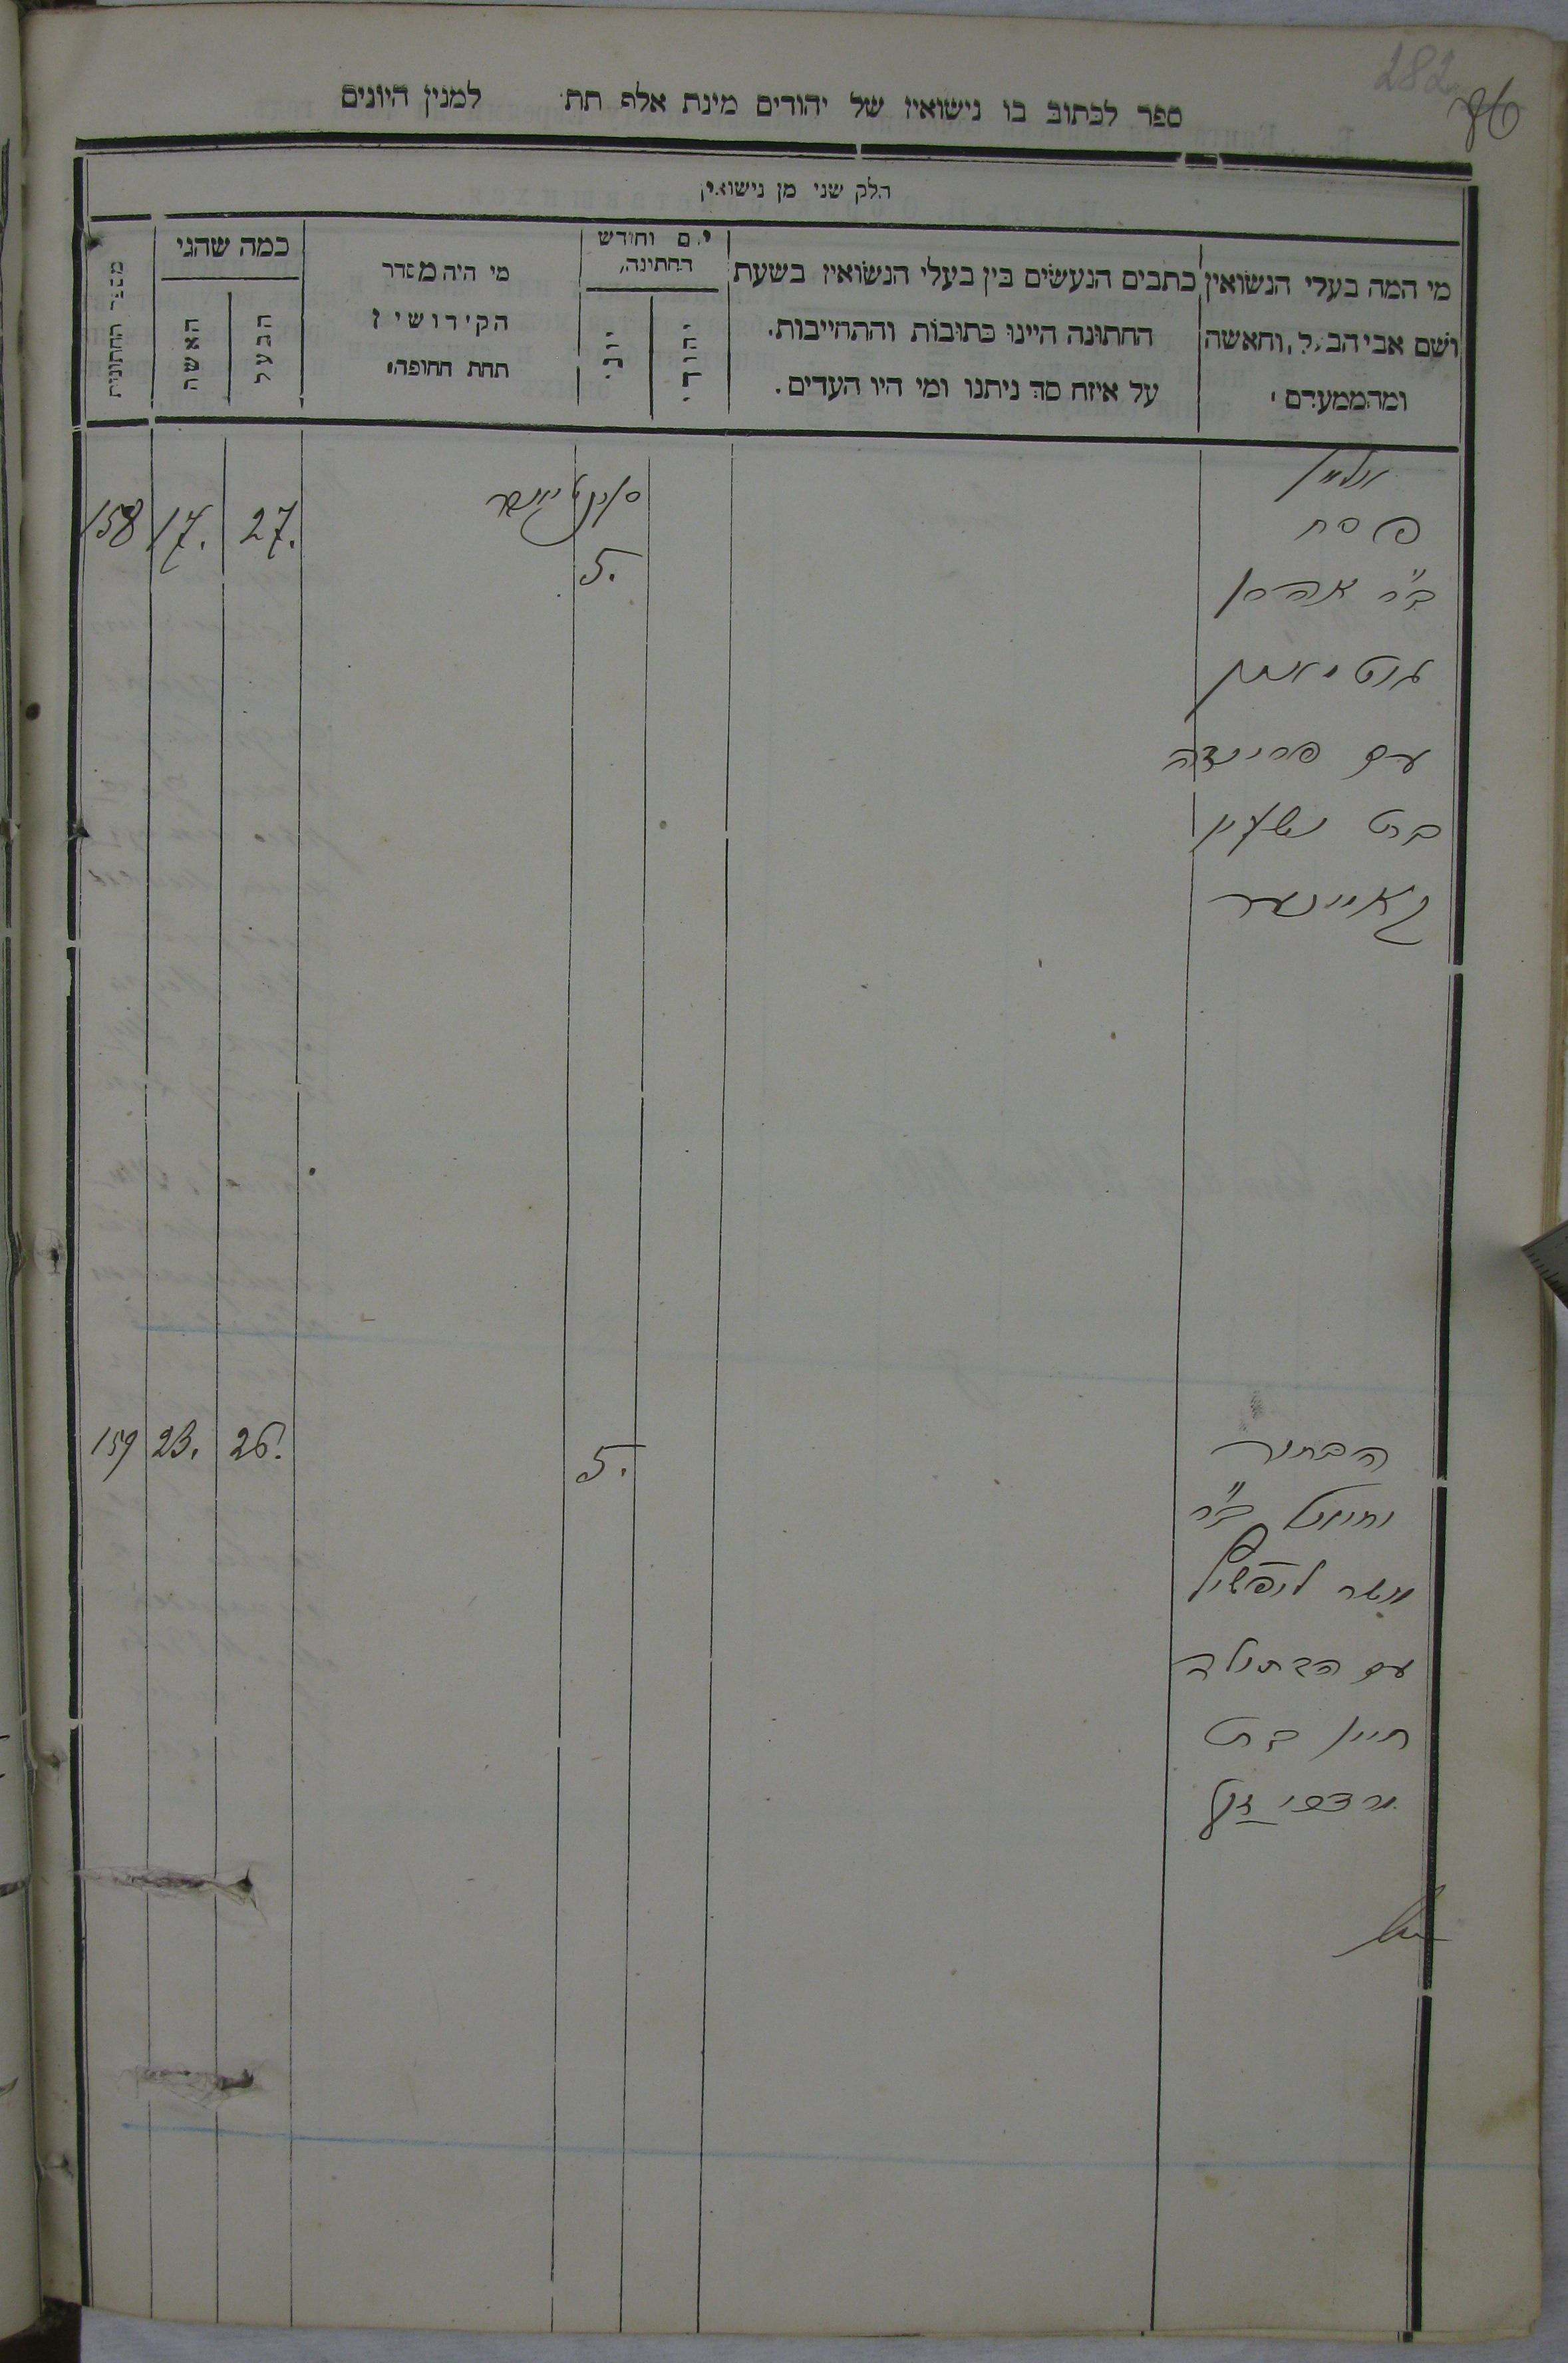 282
96
ספר לכתוב בו נישואין של יהודים מינת אלף תת למנין היונים
חלק שני מן נישואין
מי המה בעלי הנשואין
ושם אבי הבעל, והאשה
ומהממעדם
כתבים הנעשים בין בעלי הנשואין בשעת
החתונה היינו כתובות והתחייבות.
על איזה סך ניתנו ומי היו העדים.
יום וחודש
החתונה,
יהודי
יוני
מי היה מסדר
הקידושין
תחת החופה
כמה שהגי
הבעל
האשה
מספר החתונות
פסח
ב"ר אהרן
עם פריידה
ברת
5.
27.
17.
158
הבחור
ב"ר
אשר ליפשיץ
עם הבתולה
חיין ברת
5.
26.
23.
159